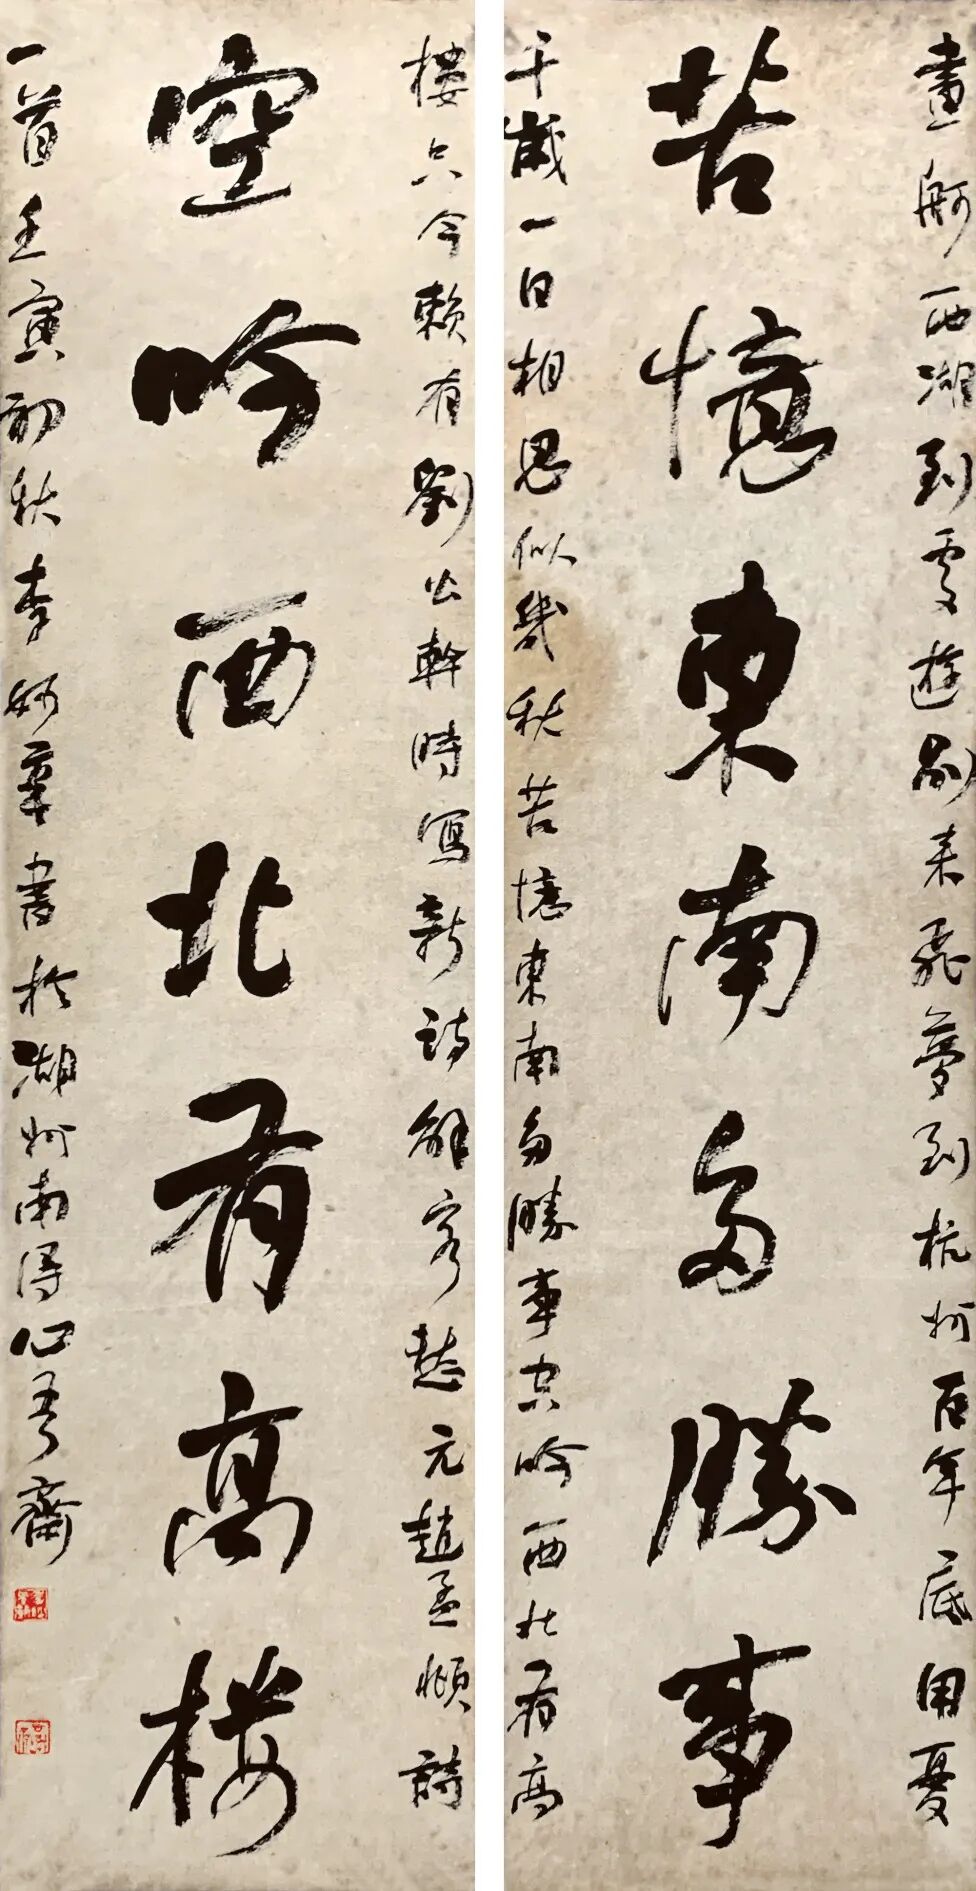 畫舸西湖到處遊別來飛夢到杭州百年底用憂
苦憶東南多勝事
千歲一日相思似幾秋苦憶東南多勝事空吟西北有高
樓只今賴有劉公幹時寫新詩解客愁元趙孟頫詩
空吟西北有高樓
一首壬寅初秋李章書於湖州南浔心齋